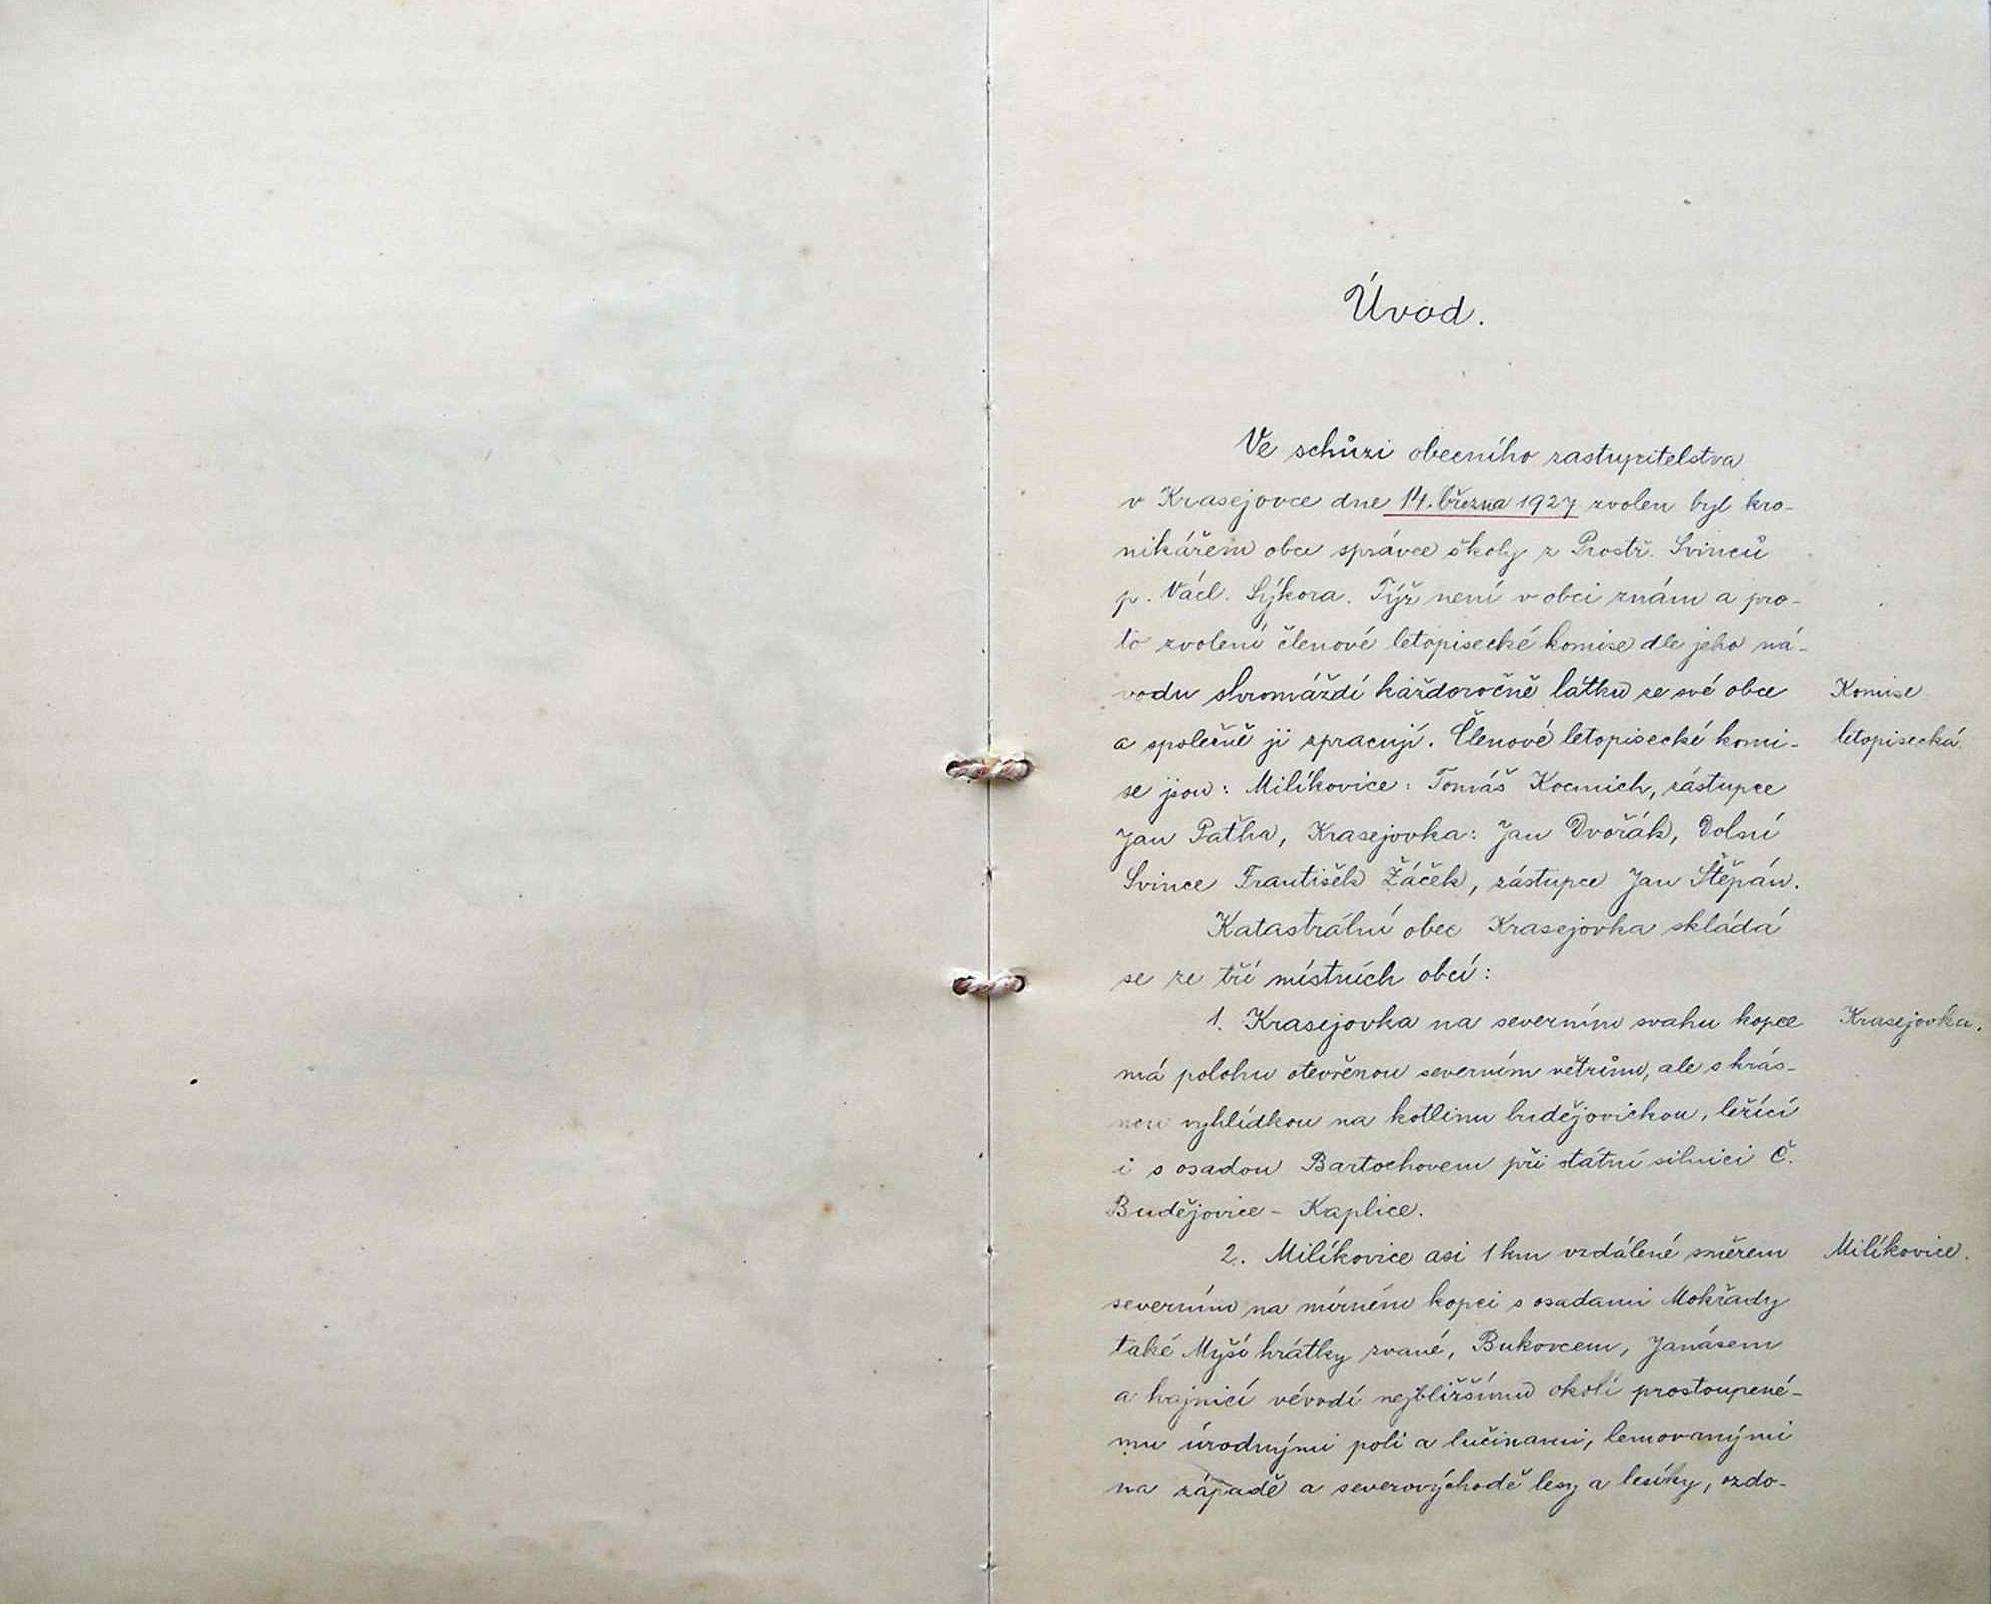 Úvod.
Ve schůzi obecního zastupitelstva
v Krasejovce dne 14. března 1927 zvolen byl kro-
nikářem obce správce školy z Prostř. Svinců
p. Václ. Sýkora. Týž není v obci znám a pro-
to zvolení členové letopisecké komise dle jeho ná-
vodu shromáždí každoročně látku ze své obce
Komise
a společně ji zpracují. Členové letopisecké komi-
letopisecká.
se jsou: Milíkovice: Tomáš Kocmich, zástupce
Jan Paťha, Krasejovka: Jan Dvořák, Dolní
Svince František Žáček, zástupce Jan Štěpán.
Katastrální obec Krasejovka skládá
se ze tří místních obcí:
1. Krasejovka na severním svahu kopce
Krasejovka.
má polohu otevřenou severním větrům, ale s krás-
nou vyhlídkou na kotlinu budějovickou, ležící
i s osadou Bartochovem při státní silnici Č.
Budějovice - Kaplice.
2. Milíkovice asi 1 km vzdálené směrem
Milíkovice.
severním na mírném kopci s osadami Mokřady
také Myší hrátky zvané, Bukovcem, Janásem
a hajnicí vévodí nejbližšímu okolí prostoupené-
mu úrodnými poli a lučinami, lemovanými
na západě a severovýchodě lesy a lesíky, ozdo-